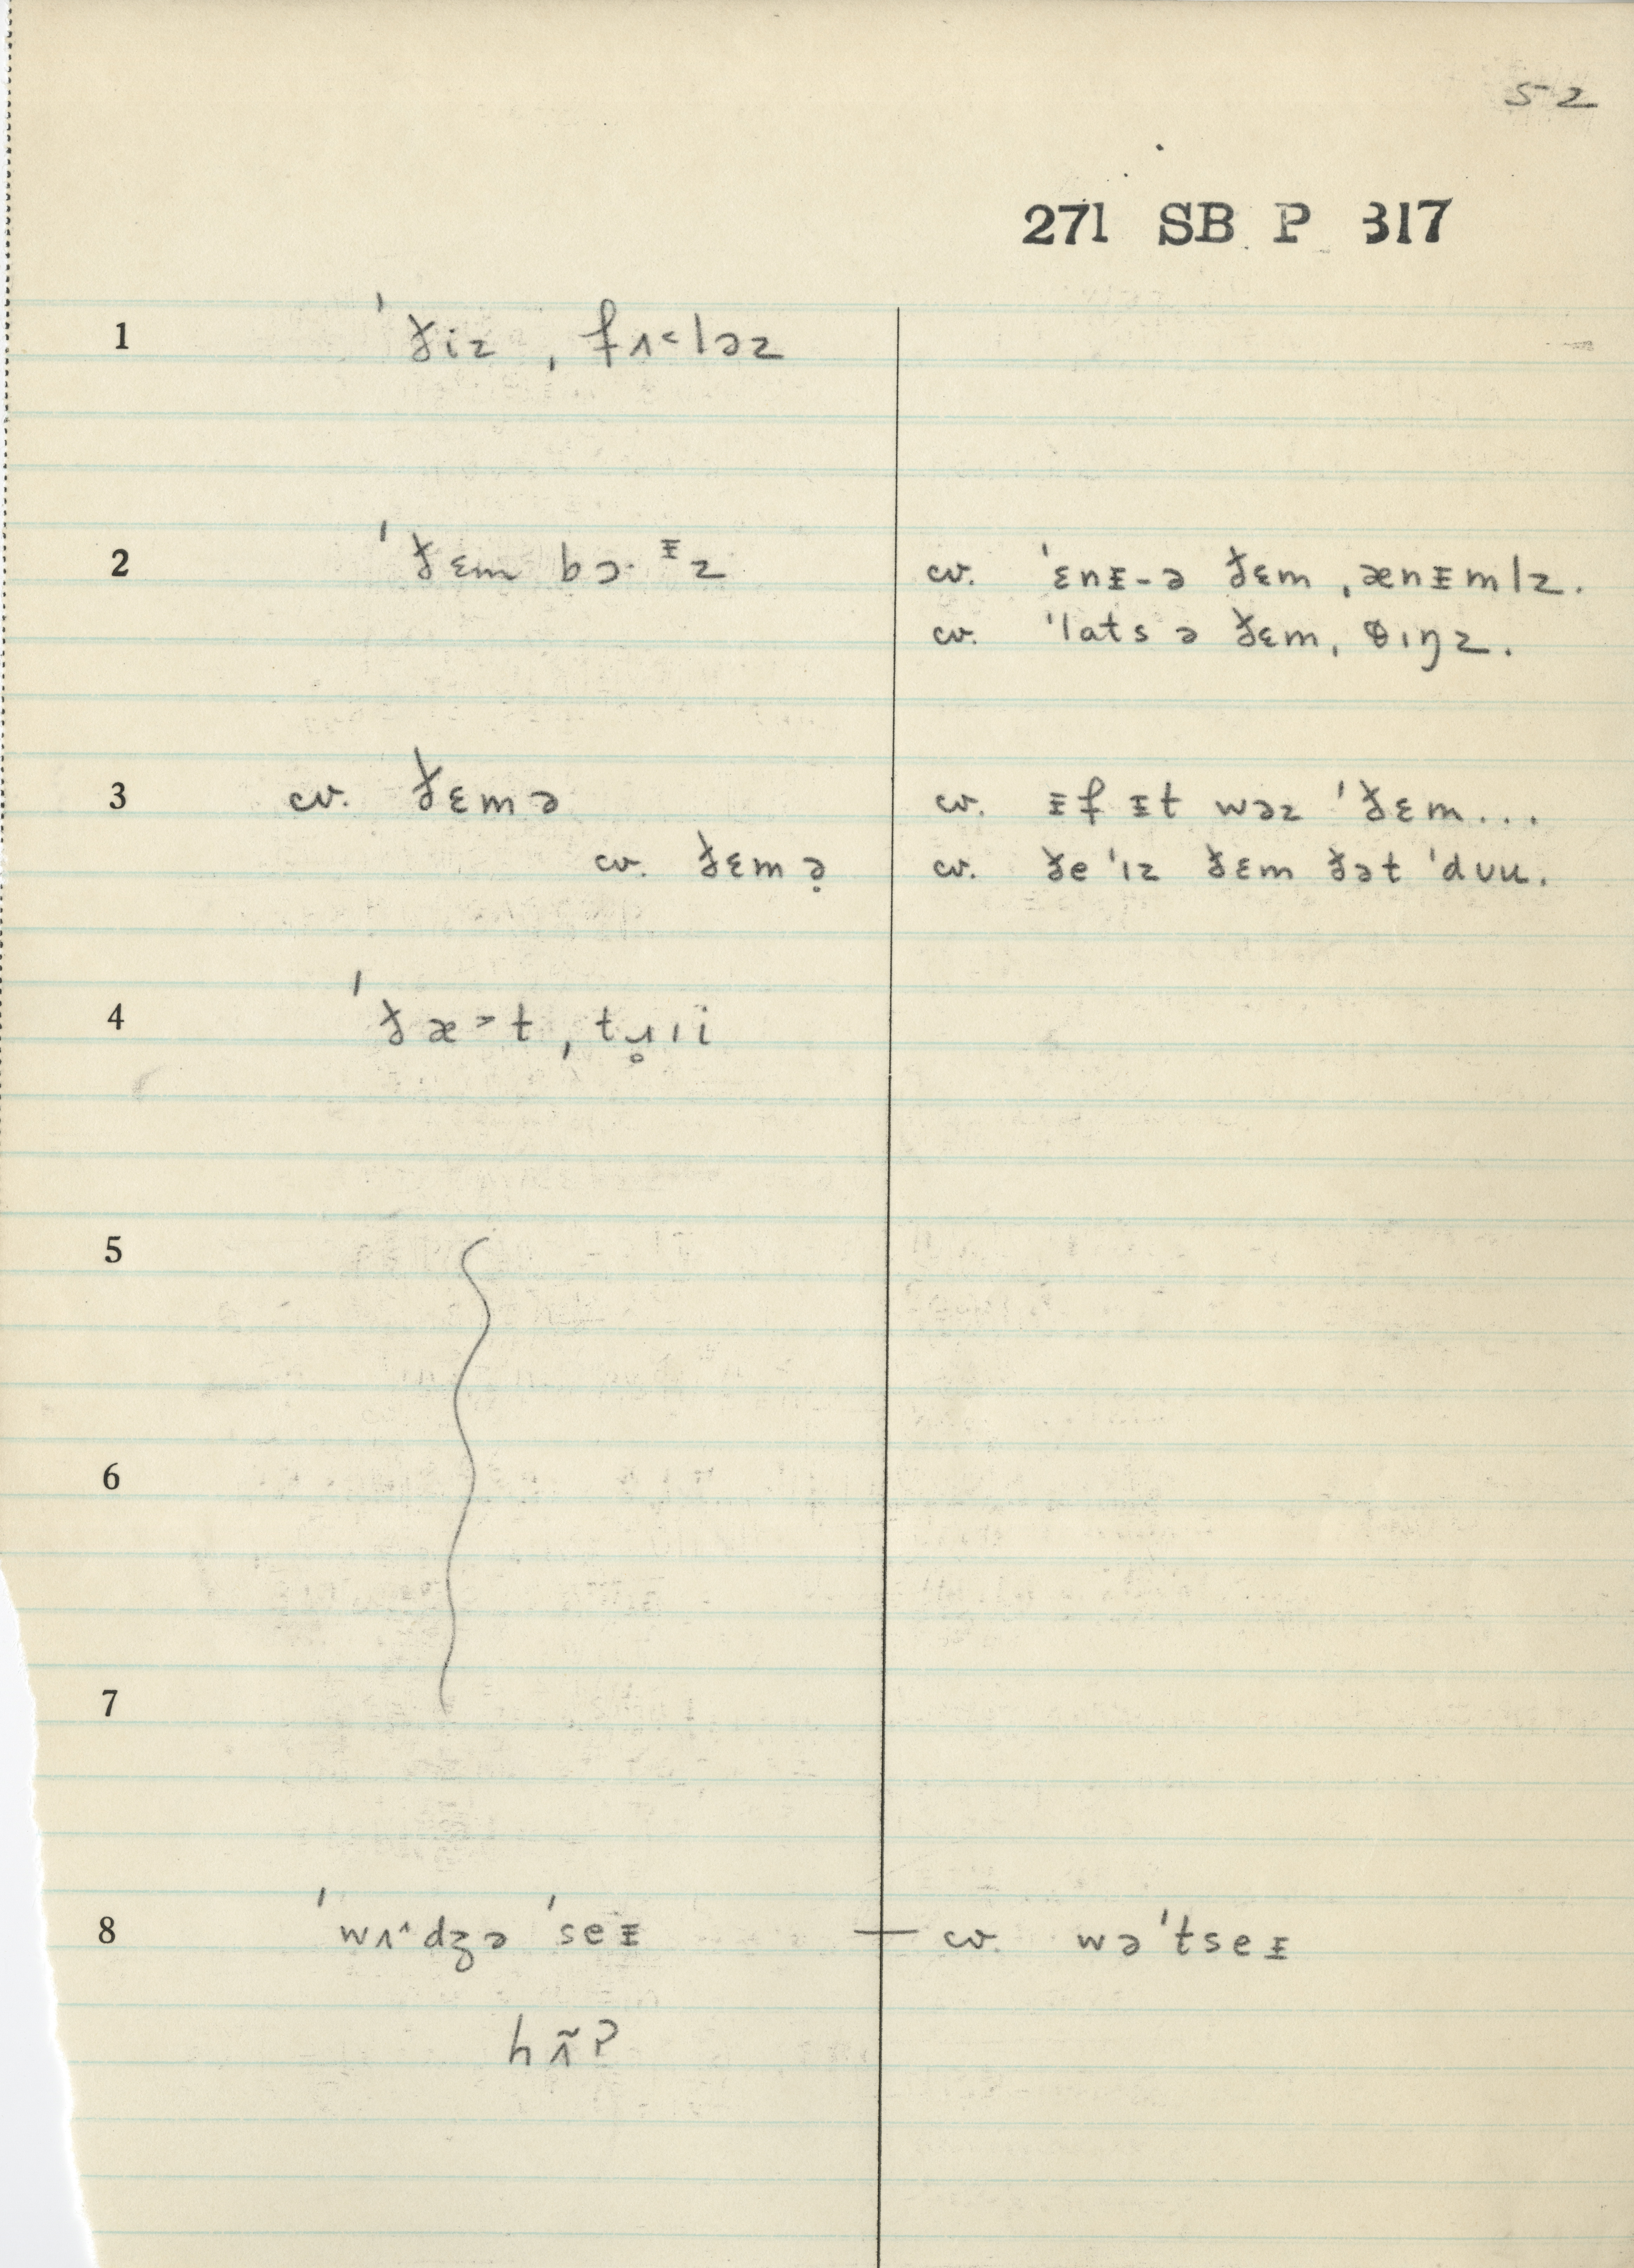 52
271 SB P 317
1 ˈðiz ˌfʌ˂ləz
2 ˈðɛm bɔ·ᵻz
cv. ˈɛnᵻ-ə ðɛm ˌænᵻmlz.
cv. ˈlats ə ðɛm ˌθɪŋz.
3 cv. ðɛmə
cv. ᵻf ᵻt wəz ˈðɛm...
cv. ðɛmə̣
cv. ðe ˈɪz ðɛm ðət ˈdʊu.
4 ˈðæ˃t ˌtɹ̥ɪi
5
6
7
8 ˈwʌ˄dʒə ˈseᵻ
cv. wəˈtseᵻ
hʌ̃?